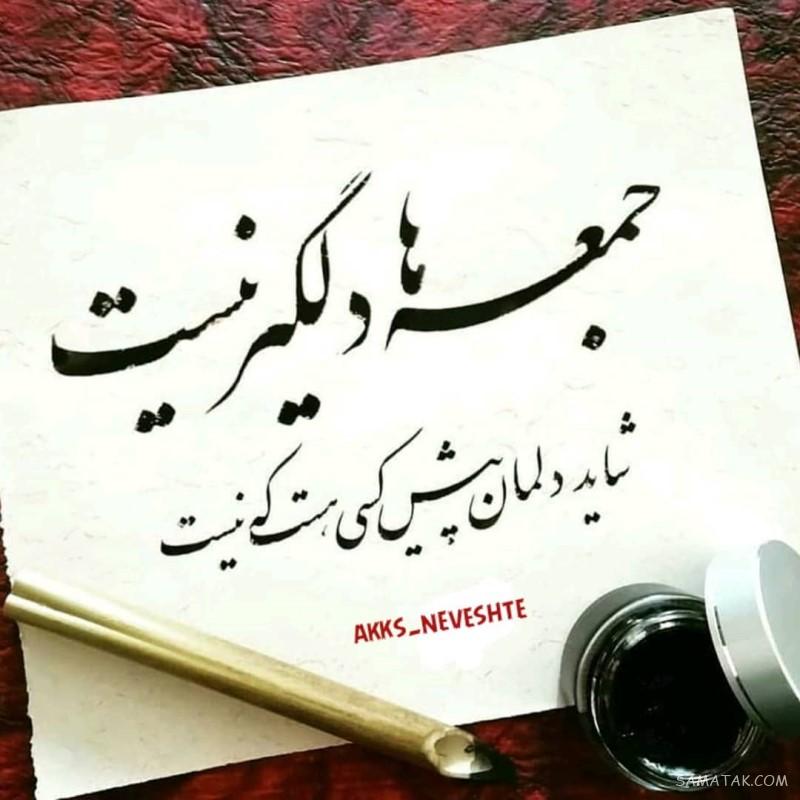 جمعه ها دلگیر نیست
شاید دلمان پیش کسی هست که نیست
AKKS_NEVESHTE
SAMATAK.COM